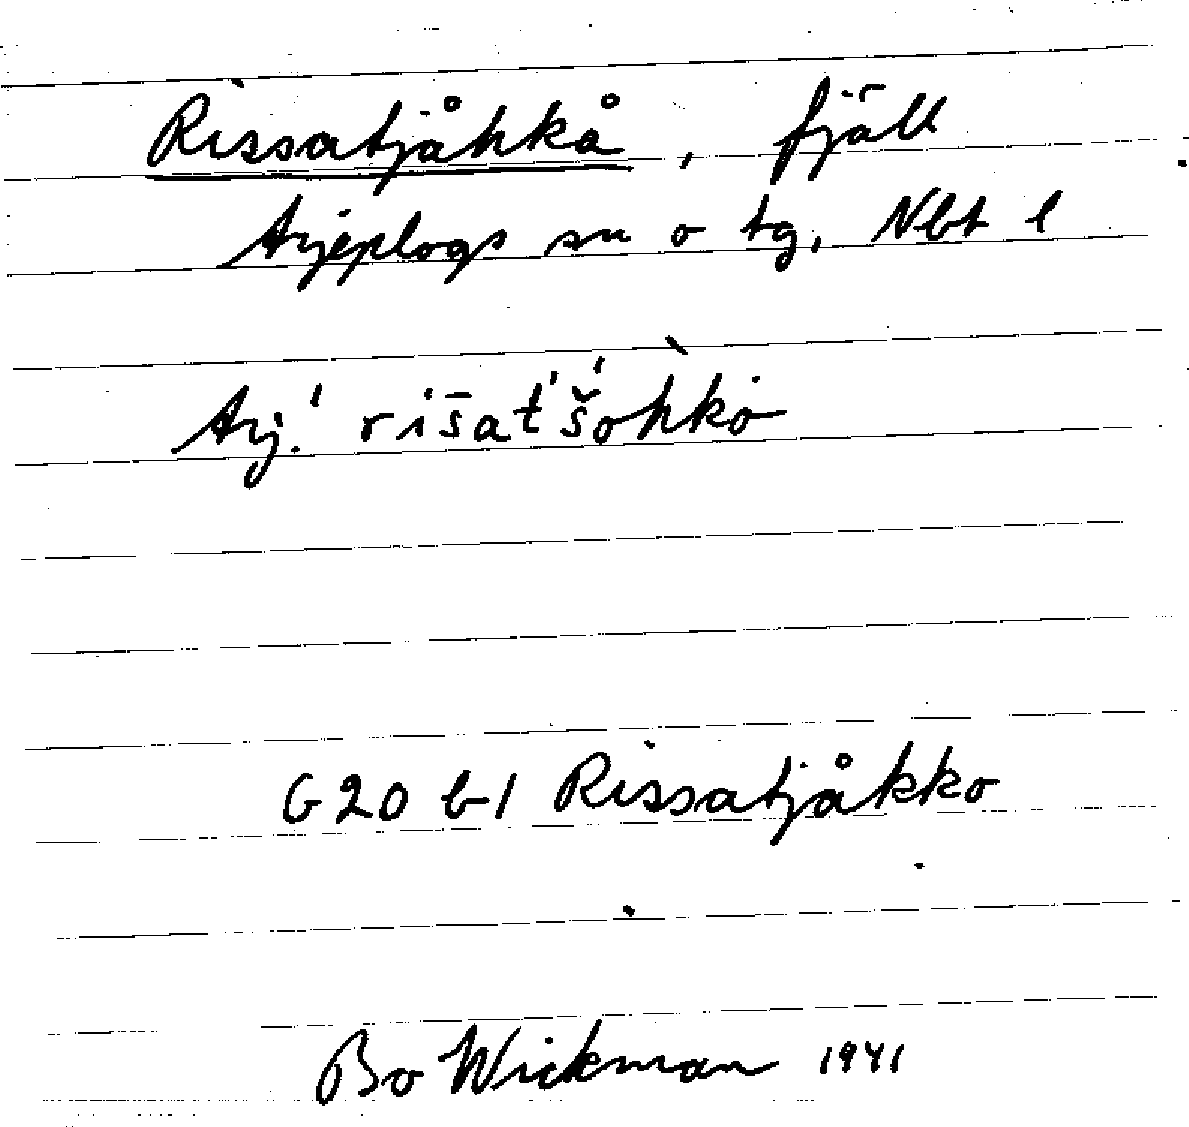 Rissatjåhkå, fjäll
Arjeplogs sn o tg, Nbt l
Arj. ˈris̄atˈšˈohkȯ
G20 b1 Rissatjåkko
Bo Wickman 1941